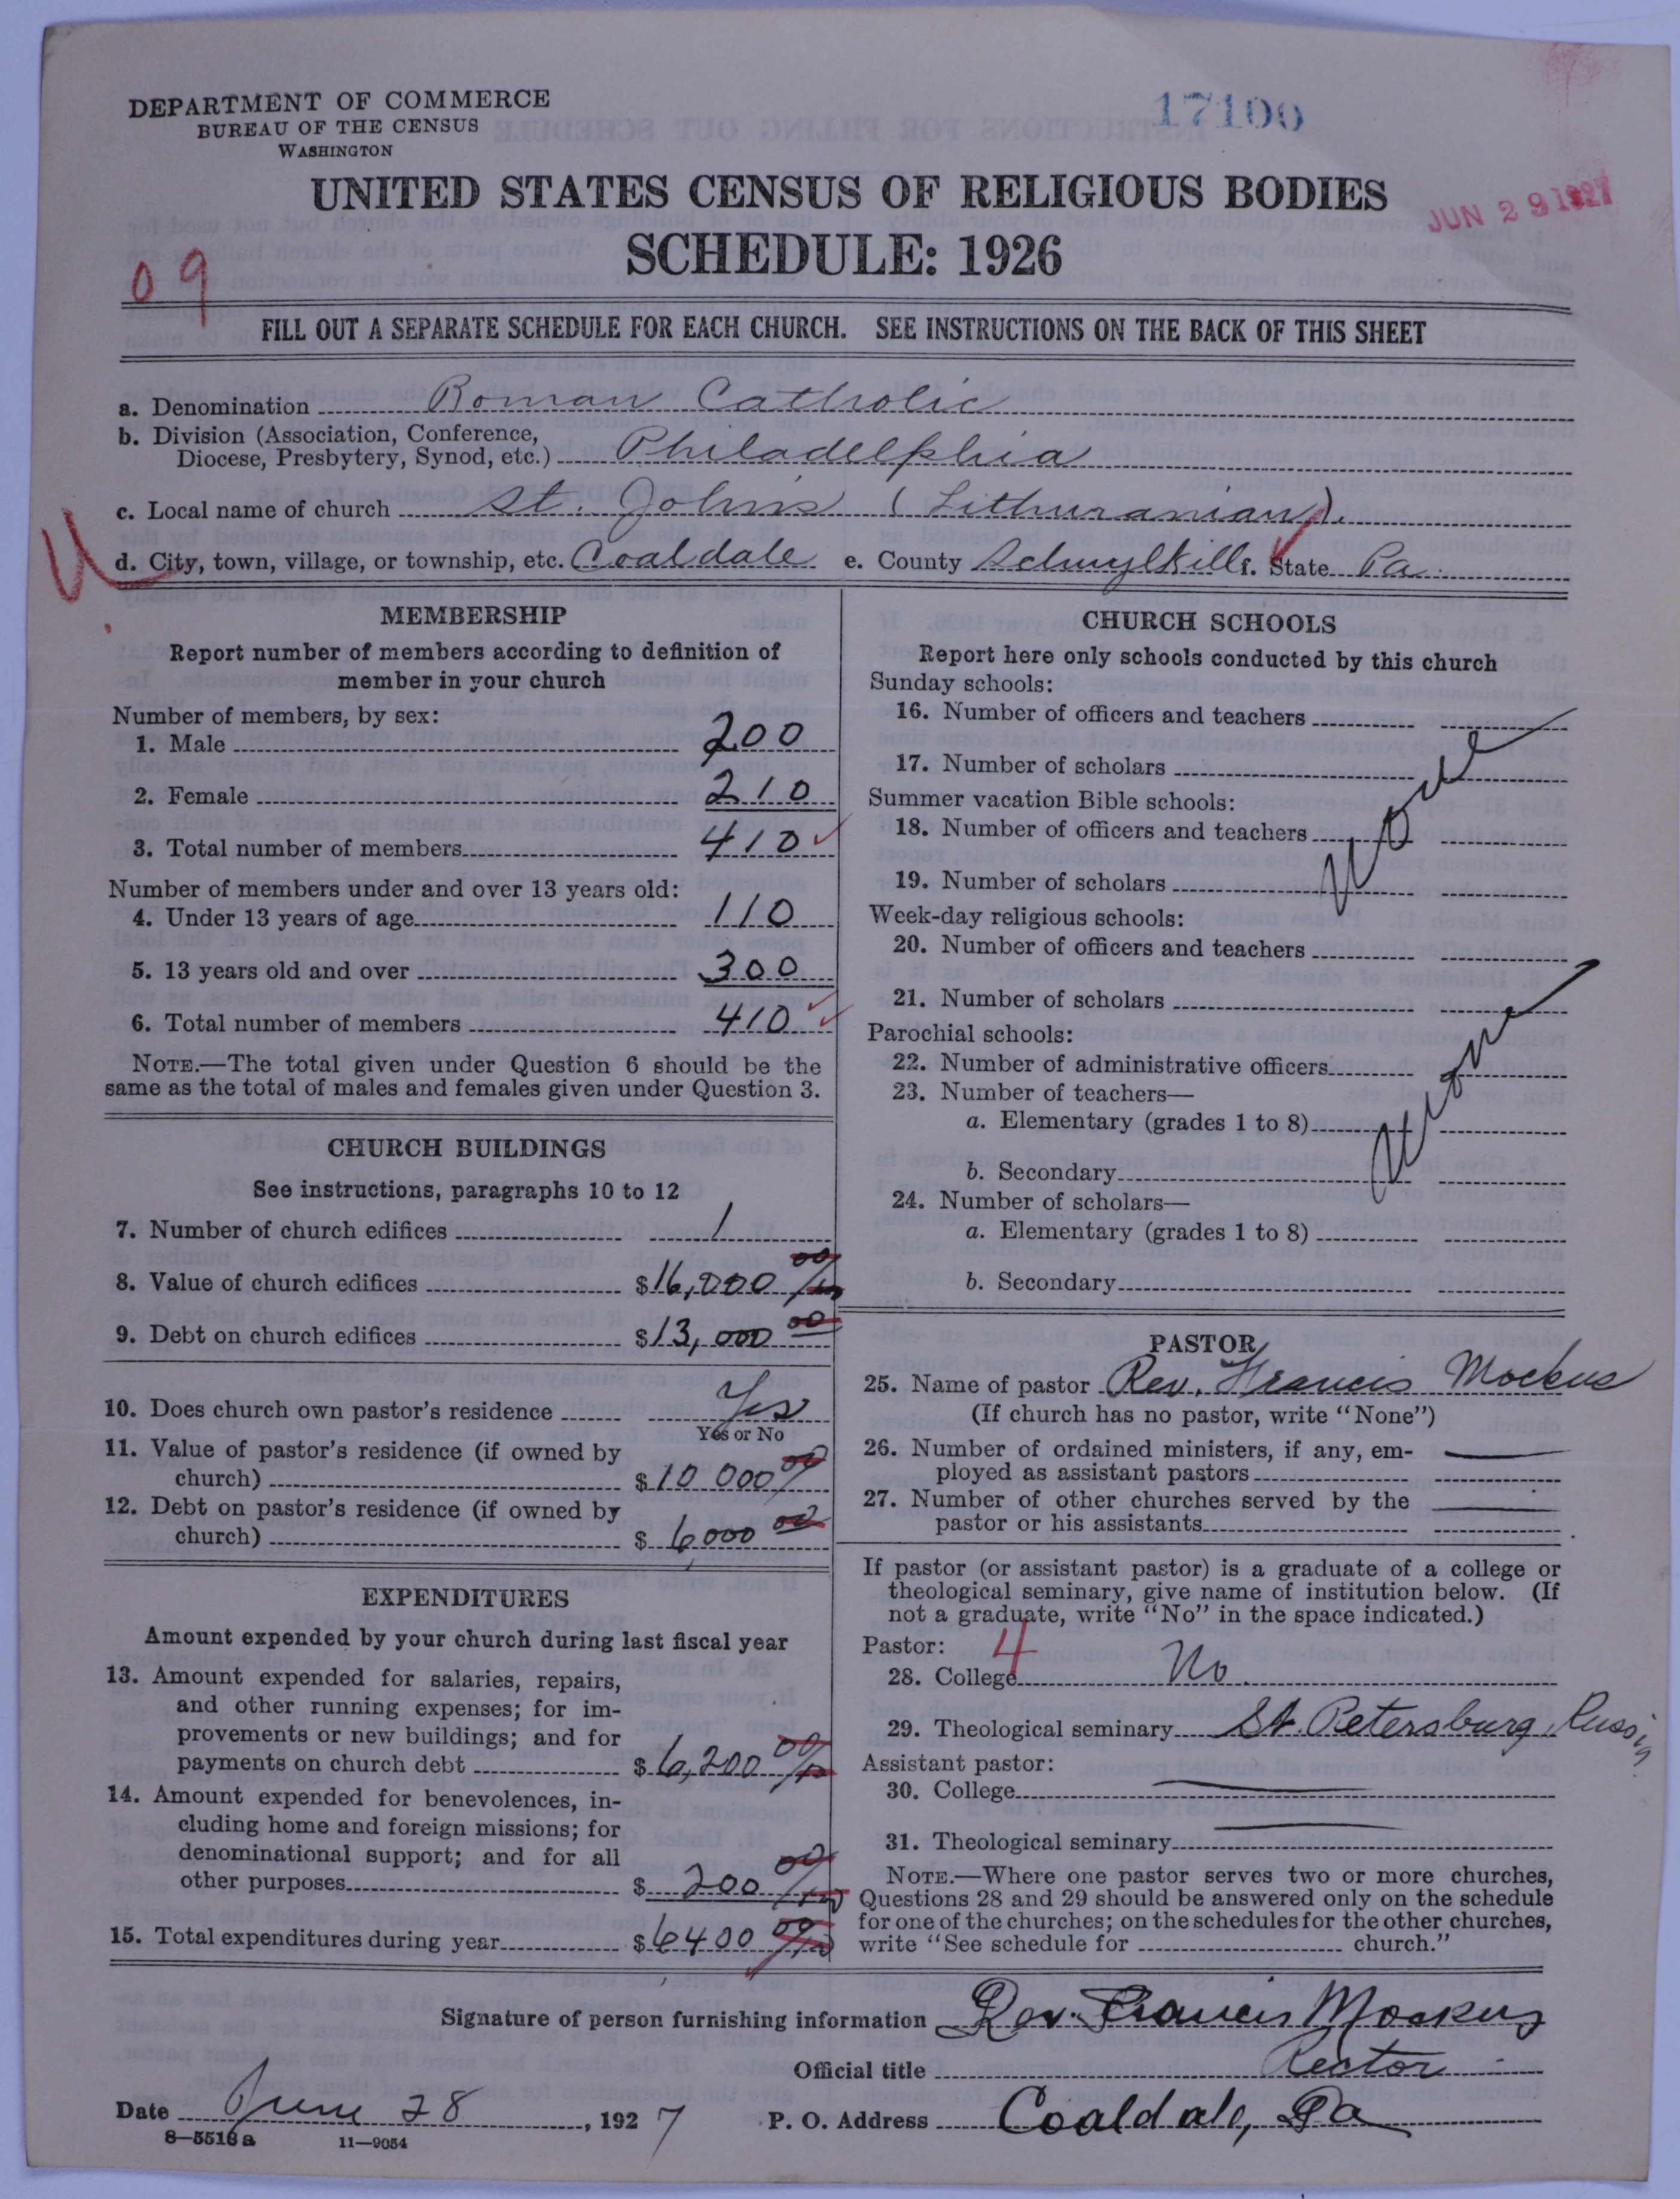 DEPARTMENT OF COMMERCE
BUREAU OF THE CENSUS
WASHINGTON
17100
UNITED STATES CENSUS OF RELIGIOUS BODIES
SCHEDULE: 1926
JUN 29 1927
09
FILL OUT A SEPARATE SCHEDULE FOR EACH CHURCH. SEE INSTRUCTIONS ON THE BACK OF THIS SHEET
a. Denomination Roman Catholic
b. Division (Association, Conference,
Diocese, Presbytery, Synod, etc.) Philadelphia
c. Local name of church St. John's (Lithuranian).
d. City, town, village, or township, etc. Coaldale e. County Schuylkill f. State Pa
MEMBERSHIP
Report number of members according to definition of
member in your church
Number of members, by sex:
1. Male 200
2. Female 210
3. Total number of members 410
Number of members under and over 13 years old:
4. Under 13 years of age 110
5. 13 years old and over 300
6. Total number of members 410
NOTE.—The total given under Question 6 should be the
same as the total of males and females given under Question 3.
CHURCH BUILDINGS
See instructions, paragraphs 10 to 12
7. Number of church edifices 1
8. Value of church edifices $16,000 00/100
9. Debt on church edifices $13,000 00
10. Does church own pastor's residence Yes
Yes or No
11. Value of pastor's residence (if owned by
church) $10 000 00
12. Debt on pastor's residence (if owned by
church) $6,000 00
EXPENDITURES
Amount expended by your church during last fiscal year
13. Amount expended for salaries, repairs,
and other running expenses; for im-
provements or new buildings; and for
payments on church debt $6,200 00/100
14. Amount expended for benevolences, in-
cluding home and foreign missions; for
denominational support; and for all
other purposes $200 00/100
15. Total expenditures during year $6400 00/100
CHURCH SCHOOLS
Report here only schools conducted by this church
Sunday schools:
16. Number of officers and teachers
17. Number of scholars
Summer vacation Bible schools:
18. Number of officers and teachers
None
19. Number of scholars
Week-day religious schools:
20. Number of officers and teachers
21. Number of scholars
Parochial schools:
22. Number of administrative officers
23. Number of teachers—
a. Elementary (grades 1 to 8)
None
b. Secondary
24. Number of scholars—
a. Elementary (grades 1 to 8)
b. Secondary
PASTOR
25. Name of pastor Rev. Francis Mockus
(If church has no pastor, write "None")
26. Number of ordained ministers, if any, em-
ployed as assistant pastors
27. Number of other churches served by the
pastor or his assistants
If pastor (or assistant pastor) is a graduate of a college or
theological seminary, give name of institution below. (If
not a graduate, write "No" in the space indicated.)
Pastor: 4
28. College No.
29. Theological seminary St. Petersburg, Russia
Assistant pastor:
30. College
31. Theological seminary
NOTE.—Where one pastor serves two or more churches,
Questions 28 and 29 should be answered only on the schedule
for one of the churches; on the schedules for the other churches,
write "See schedule for church."
Signature of person furnishing information Rev. Francis Mockus
Official title Rector
Date June 28, 1927 P. O. Address Coaldale, Pa
8—5516a 11—9054